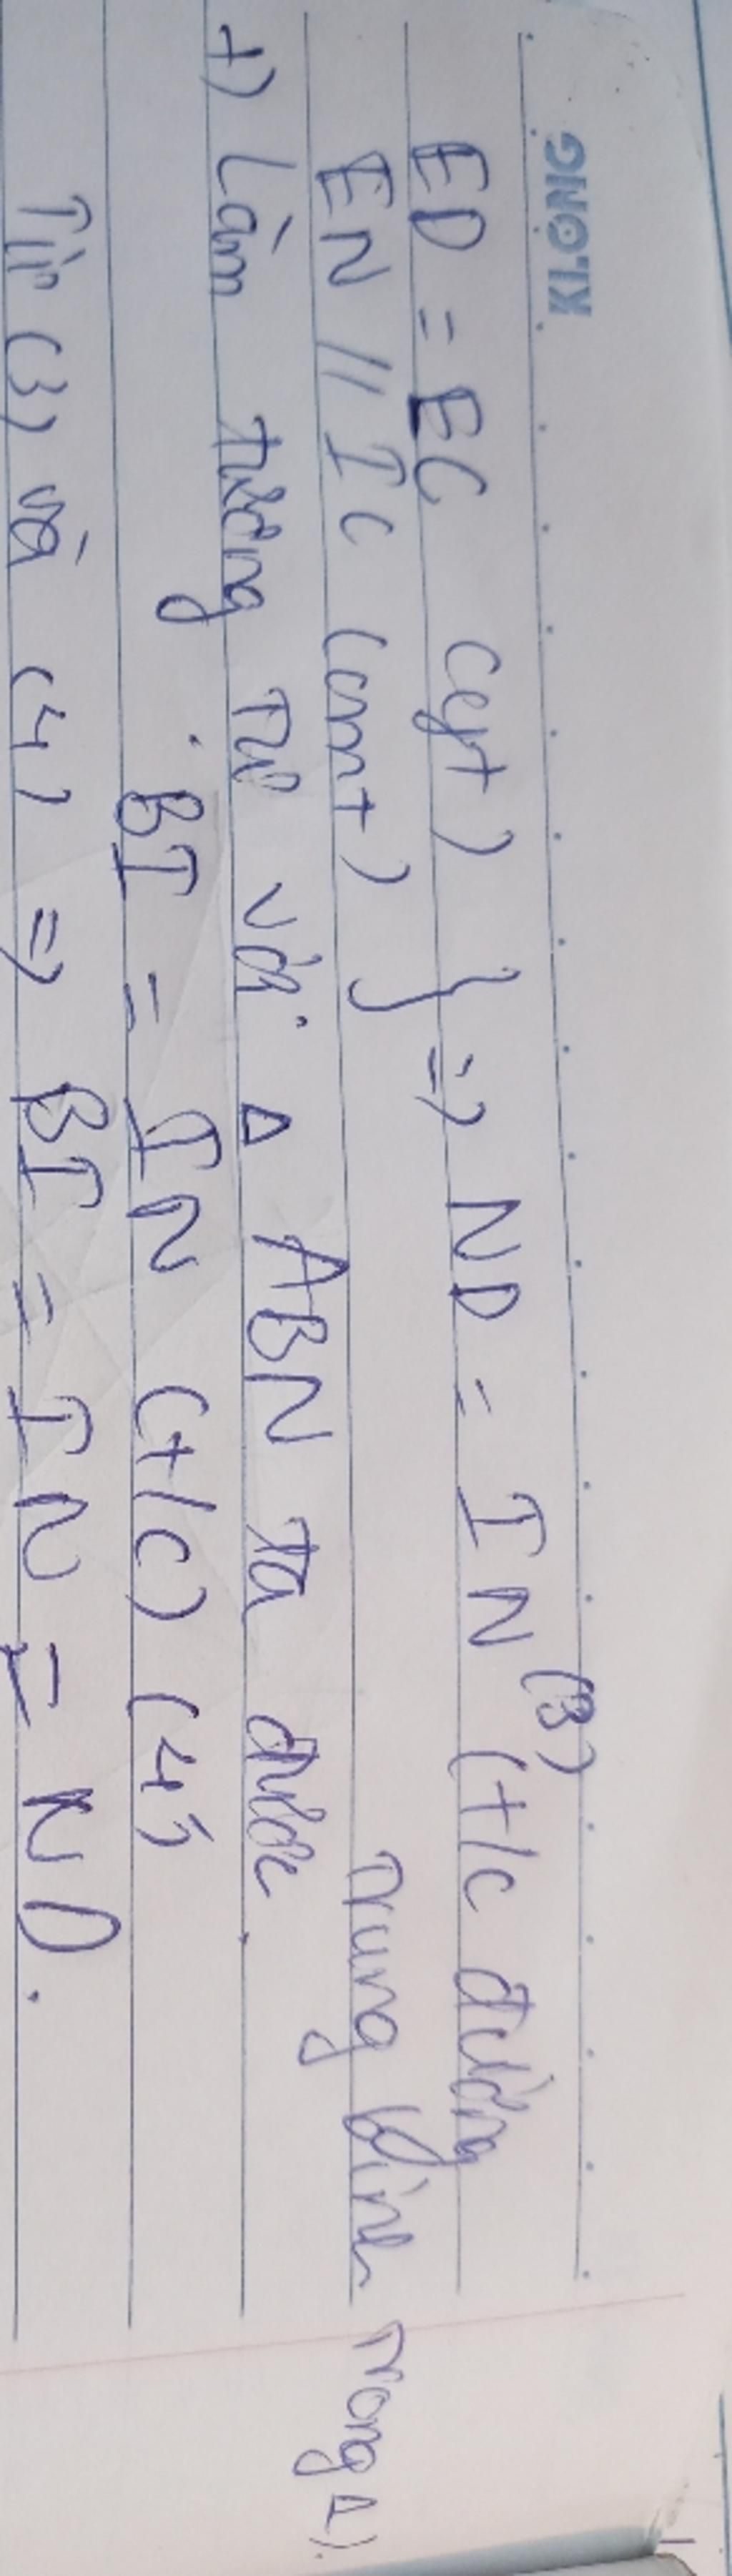 KLONG
ED = EC (gt) } => ND = IN (3) (t/c đường
EN // IC (cmt) trung bình trong Δ).
+) Làm tương tự với Δ ABN ta được
BI = IN (t/c) (4)
Từ (3) và (4) => BI = IN = ND.